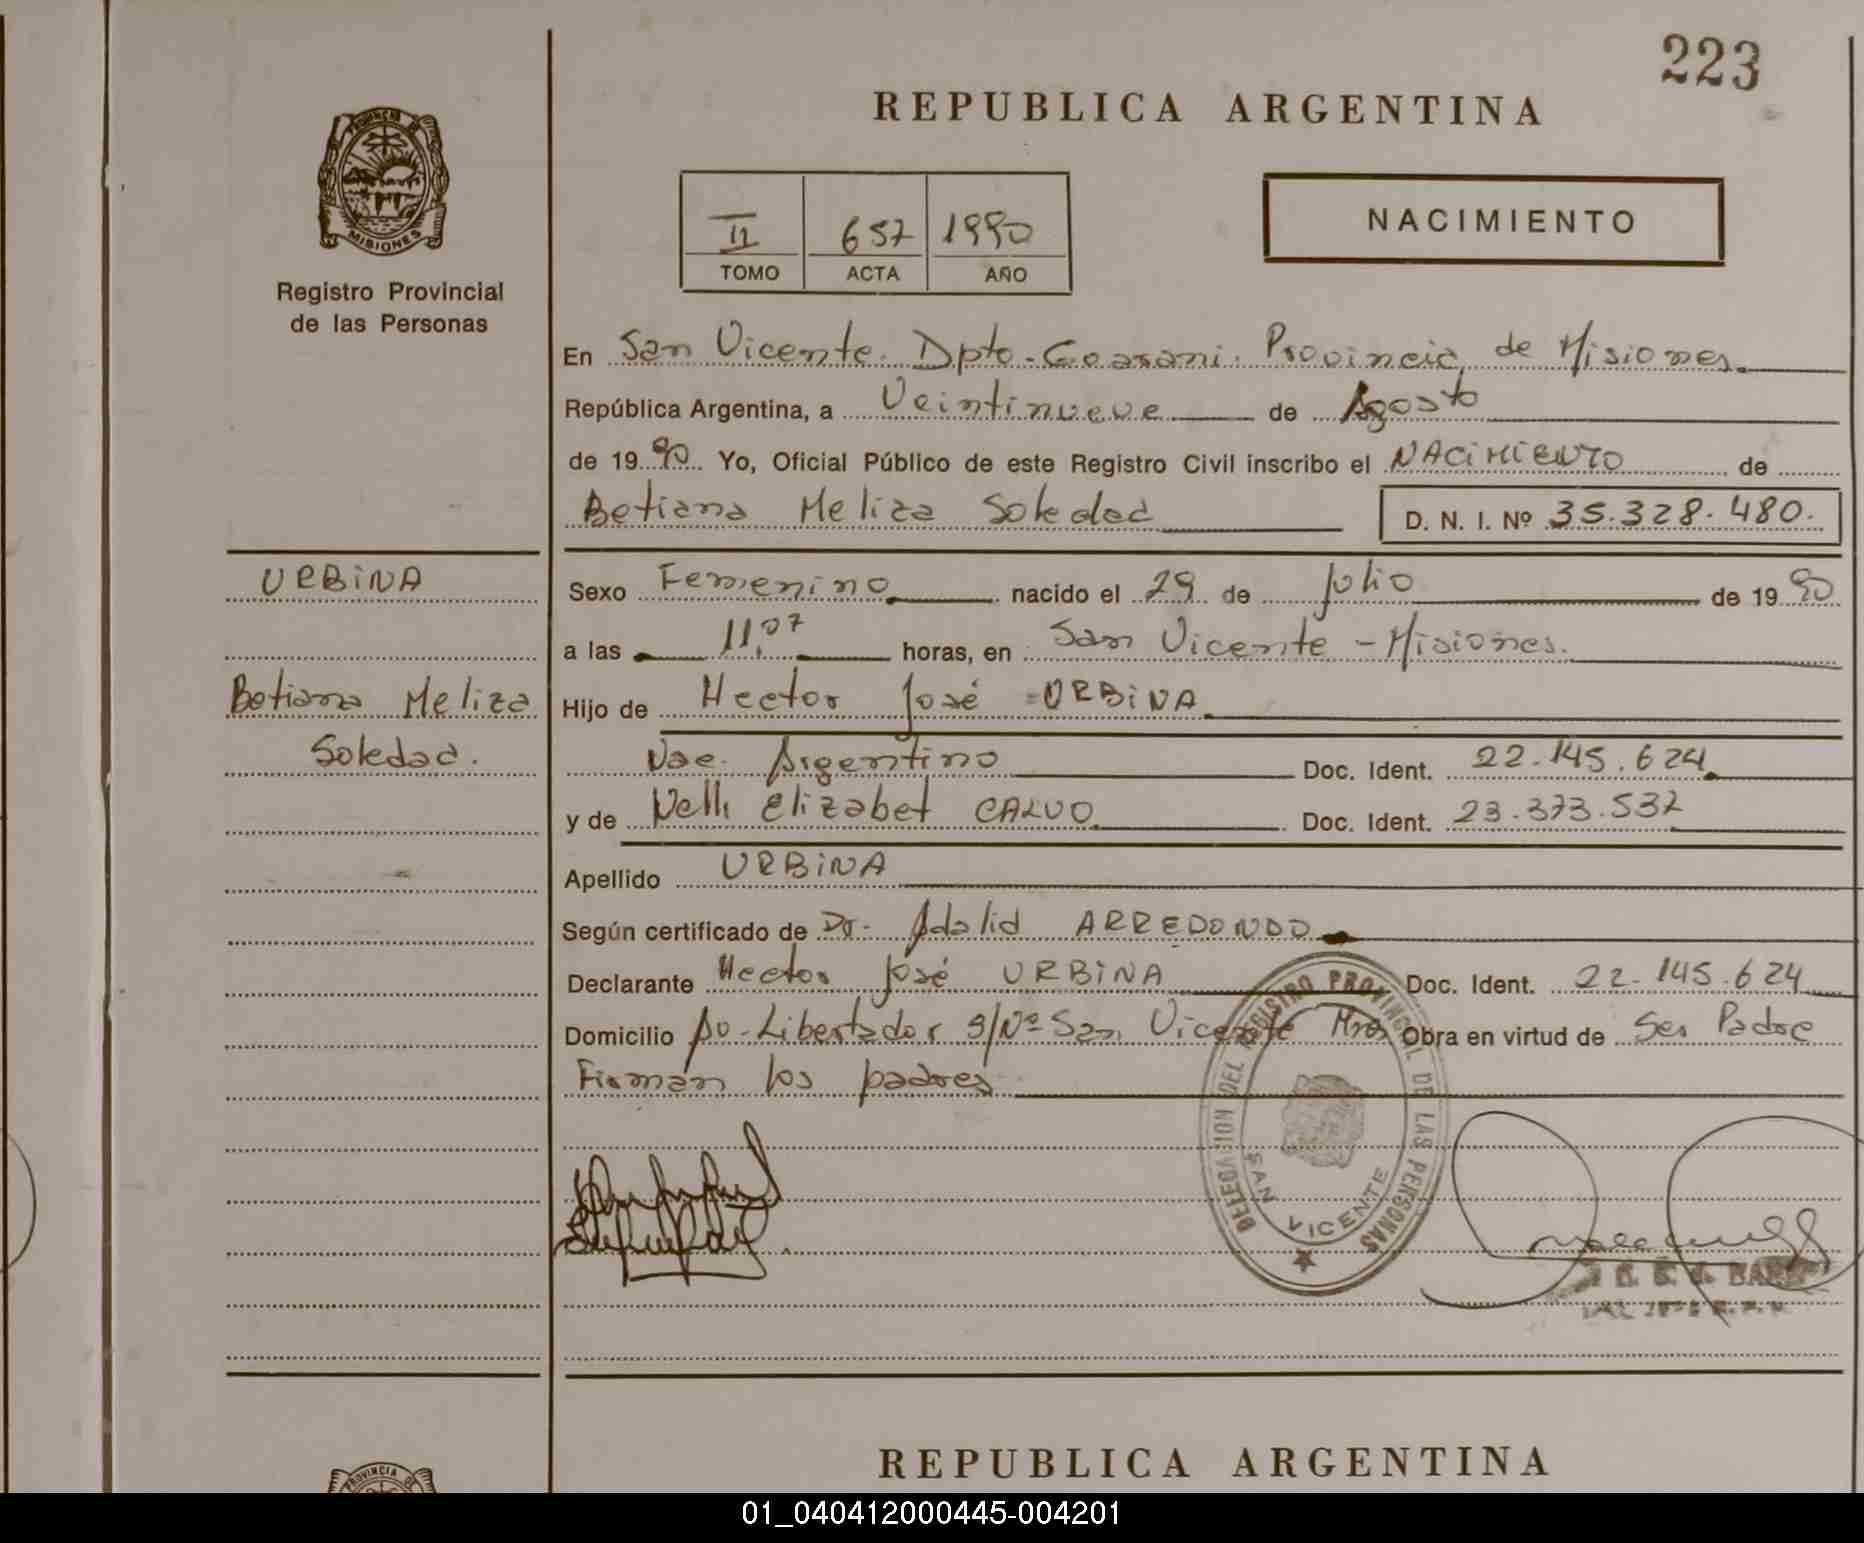 223
REPUBLICA ARGENTINA
PROVINCIA DE
MISIONES
Registro Provincial
de las Personas
II 657 1990
TOMO ACTA AÑO
NACIMIENTO
En San Vicente. Dpto. Guarani. Provincia de Misiones.
República Argentina, a Veintinueve de Agosto
de 1990. Yo, Oficial Público de este Registro Civil inscribo el NACIMIENTO de
Betiana Meliza Soledad D. N. I. Nº 35.328.480.
URBINA
Sexo Femenino nacido el 29 de Julio de 1990
a las 11,07 horas, en San Vicente - Misiones.
Betiana Meliza
Hijo de Hector José URBINA
Soledad.
Nac. Argentino Doc. Ident. 22.145.624
y de Nelli Elizabet CALVO Doc. Ident. 23.373.537
Apellido URBINA
Según certificado de Dr. Adalid ARREDONDO
Declarante Hector José URBINA Doc. Ident. 22.145.624
Domicilio Av. Libertador S/Nº San Vicente Mnes Obra en virtud de Ser Padre
Firman los padres
DELEGACION DEL REGISTRO PROVINCIAL DE LAS PERSONAS
SAN VICENTE
REPUBLICA ARGENTINA
PROVINCIA DE
01_040412000445-004201